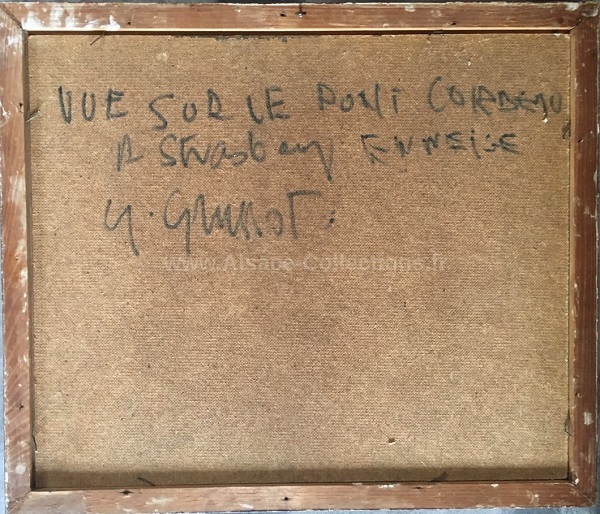 VUE SUR LE PONT CORBEAU
A Strasbourg ENNEIGE
www.Alsace-Collections.fr